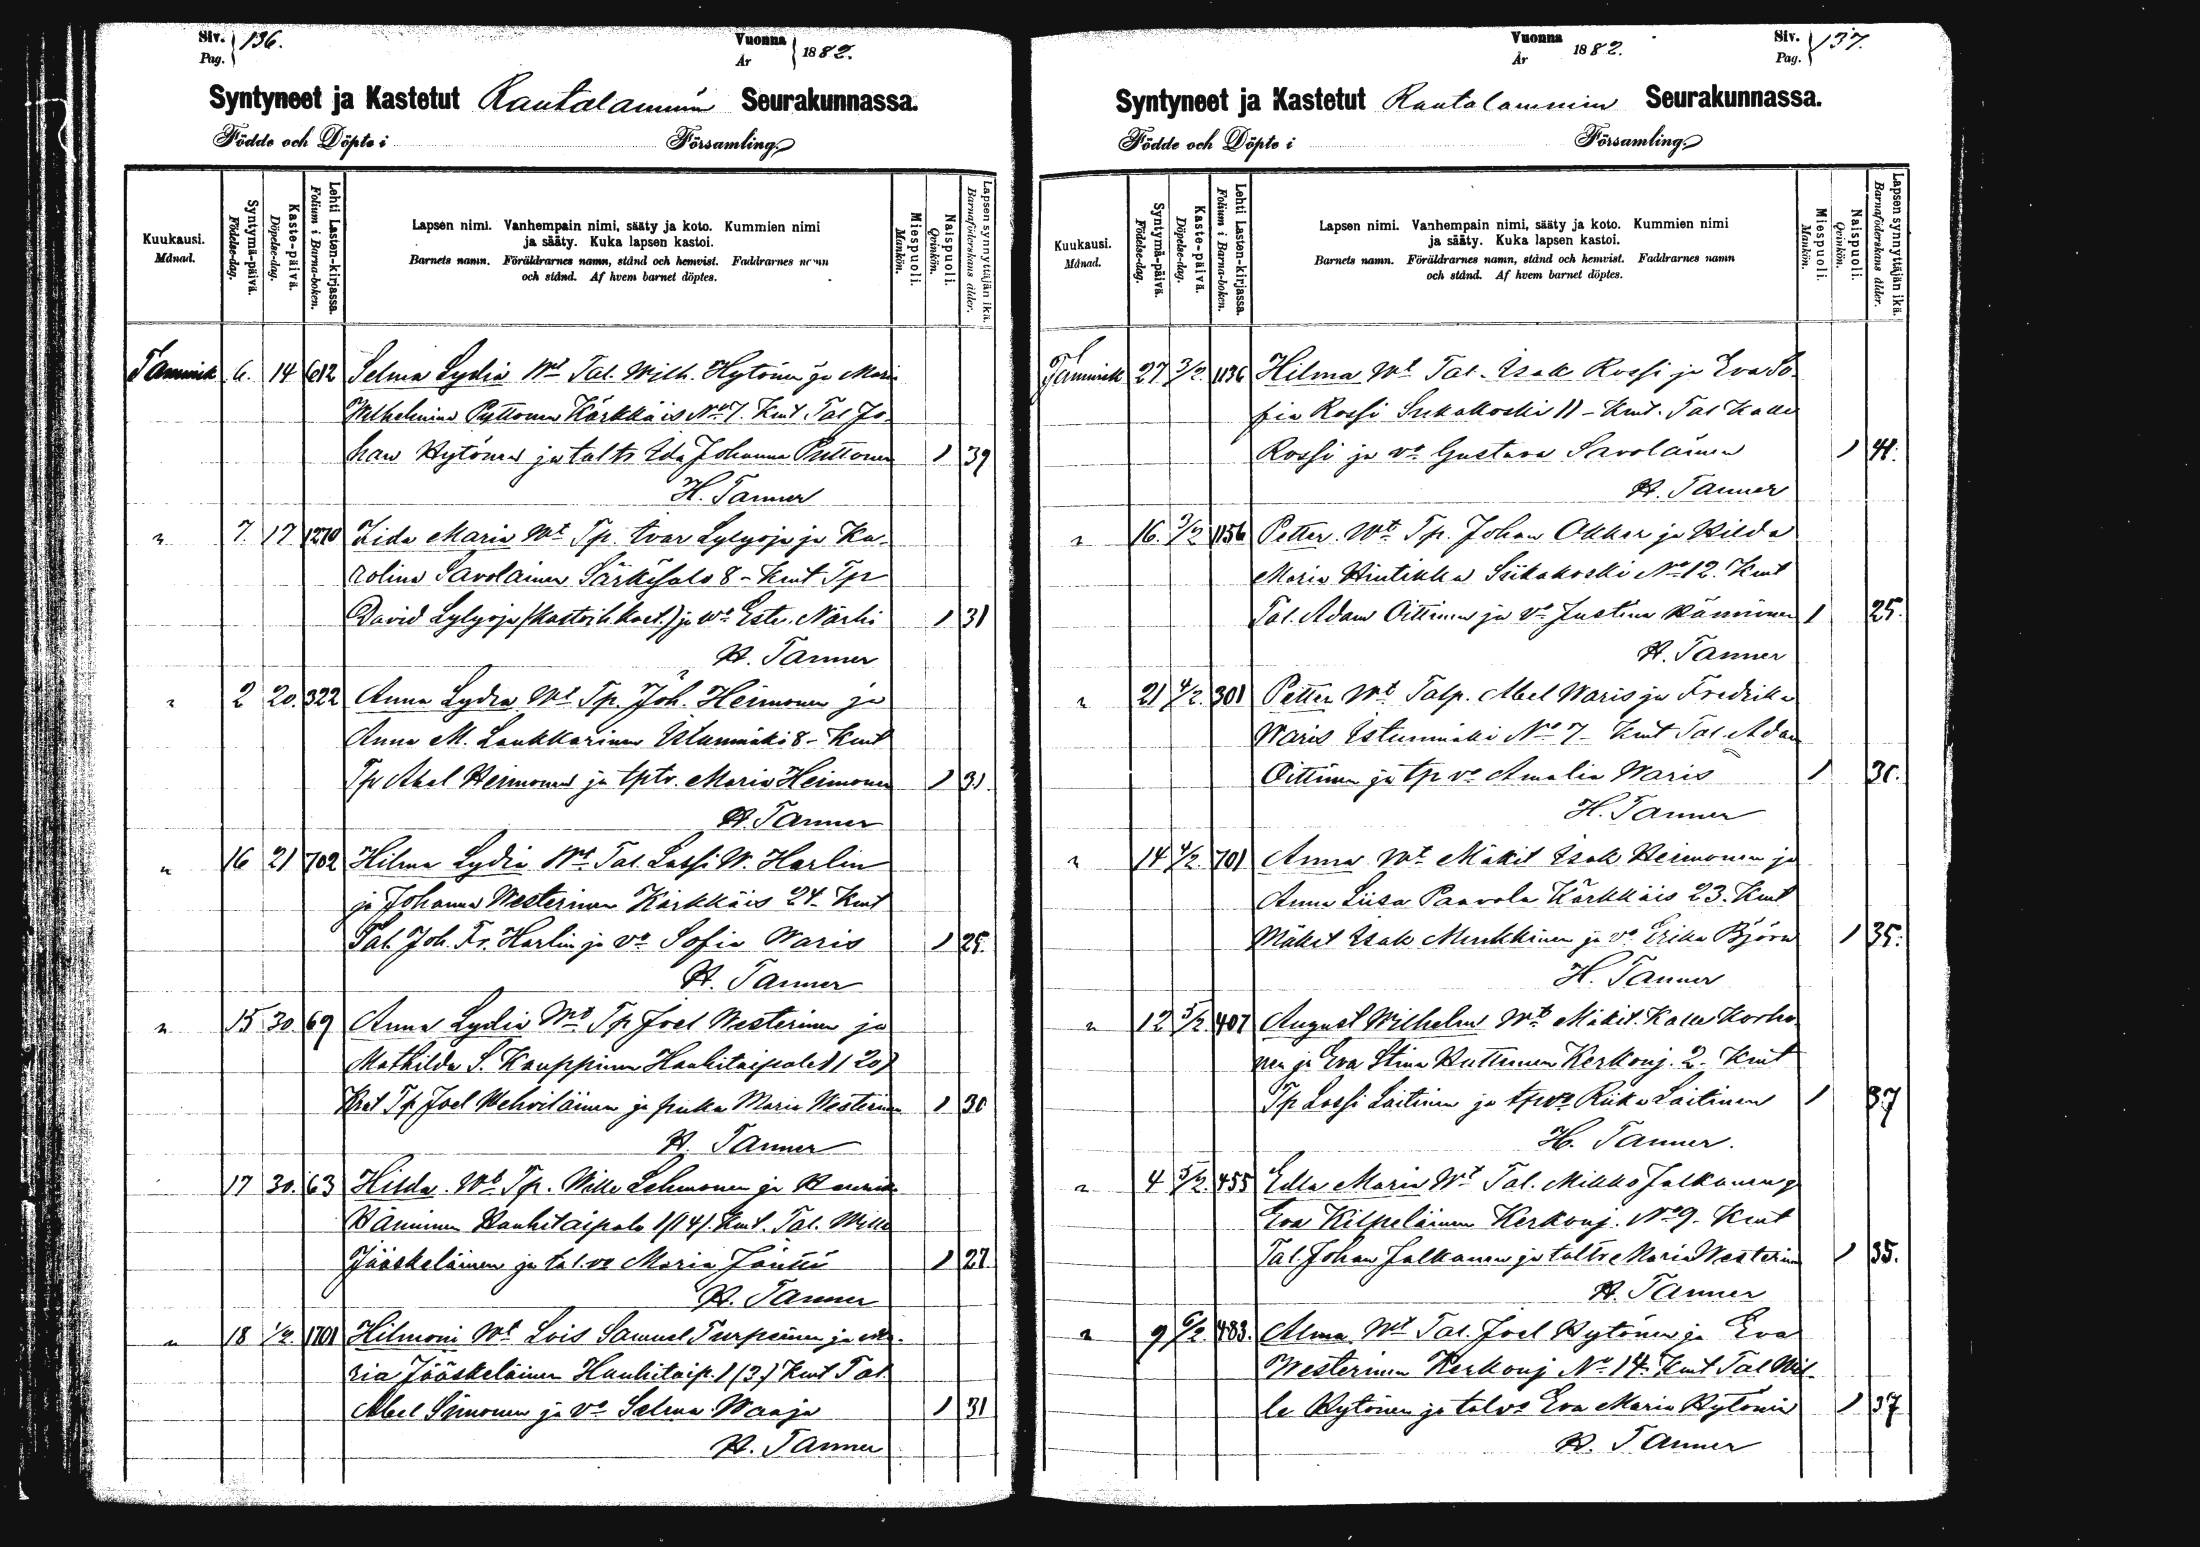 Siv. 136.
Pag.
Vuonna 1882.
År
Syntyneet ja Kastetut Rautalammin Seurakunnassa.
Födde och Döpte i Församling
Kuukausi.
Månad.
Syntymä-päivä.
Födelse-dag.
Kaste-päivä.
Döpelse-dag.
Lehti Lasten-kirjassa.
Folium i Barna-boken.
Lapsen nimi. Vanhempain nimi, sääty ja koto. Kummien nimi
ja sääty. Kuka lapsen kastoi.
Barnets namn. Föräldrarnes namn, stånd och hemvist. Faddrarnes namn
och stånd. Af hvem barnet döptes.
Miespuoli.
Mankön.
Naispuoli.
Qvinkön.
Lapsen synnyttäjän ikä.
Barnaföderskans ålder.
Tammik 6. 14 612 Selma Lydia Wt Tal. Wilh. Hytönen ja Maria
Wilhelmina Puttonen Kärkkäis No 7. Kmt Tal Jo-
han Hytönen ja taltr Ida Johanna Puttonen 1 39
H. Tanner
" 7. 17 1270 Iida Maria Wt Tp. Ivar Lylyoja ja Ka-
rolina Savolainen Särkisalo 8 - Kmt Tp
David Lylyoja ja wo Närhi 1 31
H. Tanner
" 2 20. 322 Anna Lydia Wt Tp. Joh. Heimonen ja
Anna M. Laukkarinen Istunmäki 8 - Kmt
Tp Abel Heimonen ja tptr. Maria Heimonen 1 31.
H. Tanner
" 16 21 702 Hilma Lydia Wt Tal. Lassi W. Harlin
ja Johanna Westerinen Kärkkäis 24. Kmt
Tal. Joh. Fr. Harlin ja vo Sofia Waris 1 25.
H. Tanner
" 15 30. 69 Anna Lydia Wt Tp Joel Westerinen ja
Mathilda S. Kauppinen Hankitaipale 1 (20)
Kmt Tp Joel Wehviläinen ja piika Maria Westerinen 1 30
H. Tanner
17 30. 63 Hilda. Wt Tp. Wille Lehmonen ja
Hänninen Hankitaipale 1 (14). Kmt. Tal. Wille
Jääskeläinen ja tal. vo Maria Jäntti 1 27
H. Tanner
" 18 1/2. 1701 Hilmoni Wt Lois Samuel Turpeinen ja Ma-
ria Jääskeläinen Hankitaip. 1 (3) Kmt Tal.
Abel Simonen ja vo Selma Waaja 1 31
H. Tanner
Vuonna 1882.
År
Siv. 137.
Pag.
Syntyneet ja Kastetut Rautalammin Seurakunnassa.
Födde och Döpte i Församling
Kuukausi.
Månad.
Syntymä-päivä.
Födelse-dag.
Kaste-päivä.
Döpelse-dag.
Lehti Lasten-kirjassa.
Folium i Barna-boken.
Lapsen nimi. Vanhempain nimi, sääty ja koto. Kummien nimi
ja sääty. Kuka lapsen kastoi.
Barnets namn. Föräldrarnes namn, stånd och hemvist. Faddrarnes namn
och stånd. Af hvem barnet döptes.
Miespuoli.
Mankön.
Naispuoli.
Qvinkön.
Lapsen synnyttäjän ikä.
Barnaföderskans ålder.
Tammik 27 3/2 1136 Hilma Wt Tal. Isak Rossi ja Eva So-
fia Rossi Siikakoski 11 - Kmt. Tal Kalle
Rossi ja vo Gustava Savolainen 1 41.
H. Tanner
" 16. 3/2 1156 Petter. Wt Tp. Johan Okker ja Hilda
Maria Hintikka Siikakoski No 12. Kmt
Tal. Adam Oittinen ja vo Justina Hänninen 1 25.
H. Tanner
" 21 4/2. 301 Petter Wt Talp. Abel Waris ja Fredrika
Waris Istunmäki No 7 - Kmt Tal. Adam
Oittinen ja tp vo Amalia Waris 1 31.
H. Tanner
" 14 4/2. 701 Anna Wt Mäkit Isak Heimonen ja
Anna Liisa Paavola Kärkkäis 23. Kmt
Mäkit Isak Minkkinen ja vo Erika Björn 1 35.
H. Tanner
" 12 5/2. 407 August Wilhelm Wt Mäkit. Kalle Korho-
nen ja Eva Stina Huttunen Kerkonj. 2 - Kmt
Tp Lassi Laitinen ja tp vo Riika Laitinen 1 37
H. Tanner.
" 4 5/2. 455 Edla Maria Wt Tal. Mikko Jalkanen ja
Eva Kilpeläinen Kerkonj. No 9. Kmt
Tal. Johan Jalkanen ja taltr Maria Westerinen 1 35.
H. Tanner
" 9 6/2. 483. Alma Wt Tal. Joel Hytönen ja Eva
Westerinen Kerkonj No 14. Kmt Tal Wil-
le Hytönen ja tal vo Eva Maria Hytönen 1 37
H. Tanner